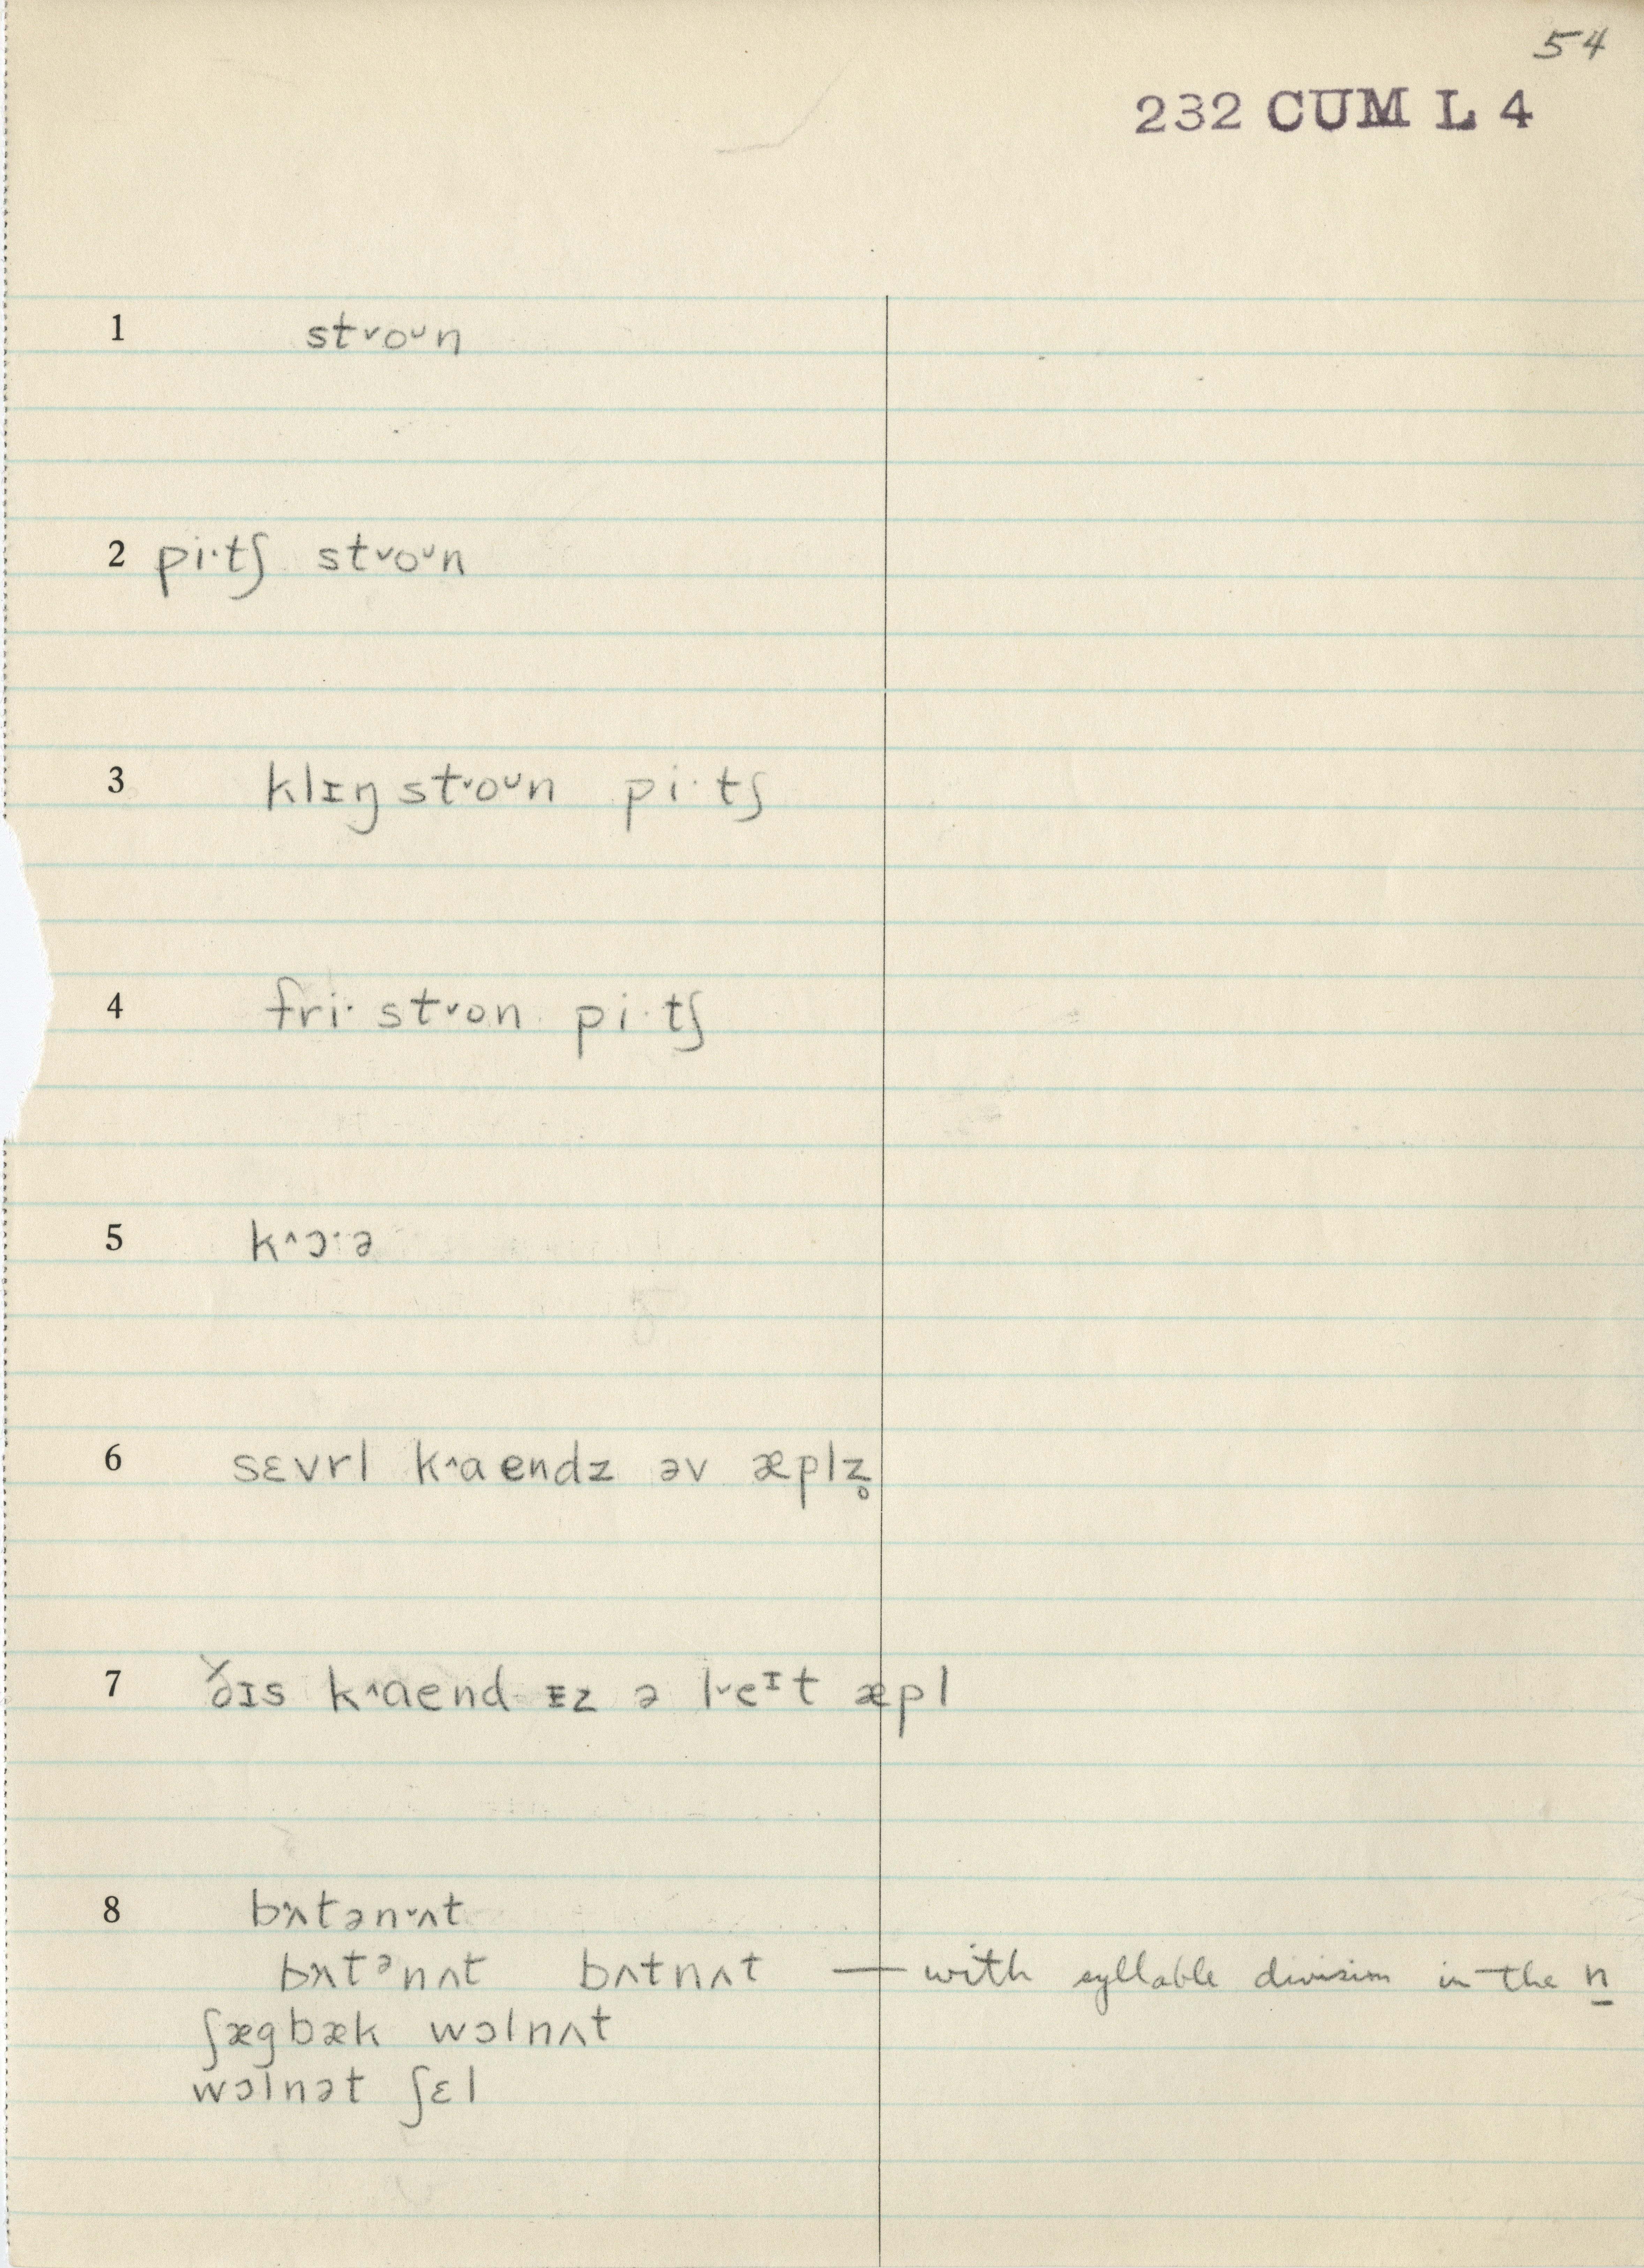 54
232 CUM L 4
1 st˅oᴗn
2 pi·tʃ st˅oᴗn
3 klɪŋ st˅oᴗn pi·tʃ
4 fri· st˅on pi·tʃ
5 k^ɔ·ə
6 sɛvrl k^aendz əv æplz̥
7 ðɪs k^aend ɪz ə l˅eᶦt æpl
8 bʌ^tən˅ʌt
bʌ^tᵊnʌt bʌtnʌt — with syllable division in the n
ʃægbæk wɔlnʌt
wɔlnət ʃɛl